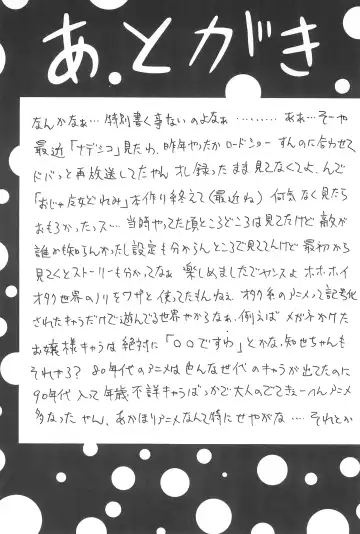 あ、とがき
なんかなぁ… 特別書く事ないのよなぁ ……… ああ…そーや
最近「ナデシコ」見たわ、昨年やったかロードショー すんのに合わせて
ドバっと再放送してたやん オレ録ったまま見てなくてよ、んで
「おじゃ女どれみ」本作り終えて(最近ね) 何気なく見たら
おもろかったっス… 当時やってた頃ところどころは見てたけど 敵が
誰かも知らんかったし設定も分からんところで見ててんけど 最初から
見てくとストーリーも分かってなぁ 楽しめましたでヤンスよ ホホホイ
オタク世界のノリをワザと使ってたもんねぇ オタク系のアニメって記号化
されたキャラだけで遊んでる世界やからなぁ、例えば メガネかけた
お嬢様キャラは 絶対に「〇〇ですわ」とかな、知世ちゃんも
それやろ? 80年代のアニメは色んな世代のキャラが出てたのに
90年代 入って 年齢不詳キャラばっかで大人のでてきぃーへんアニメ
多なった やん、あかほりアニメなんて特にせやがな …. それとか